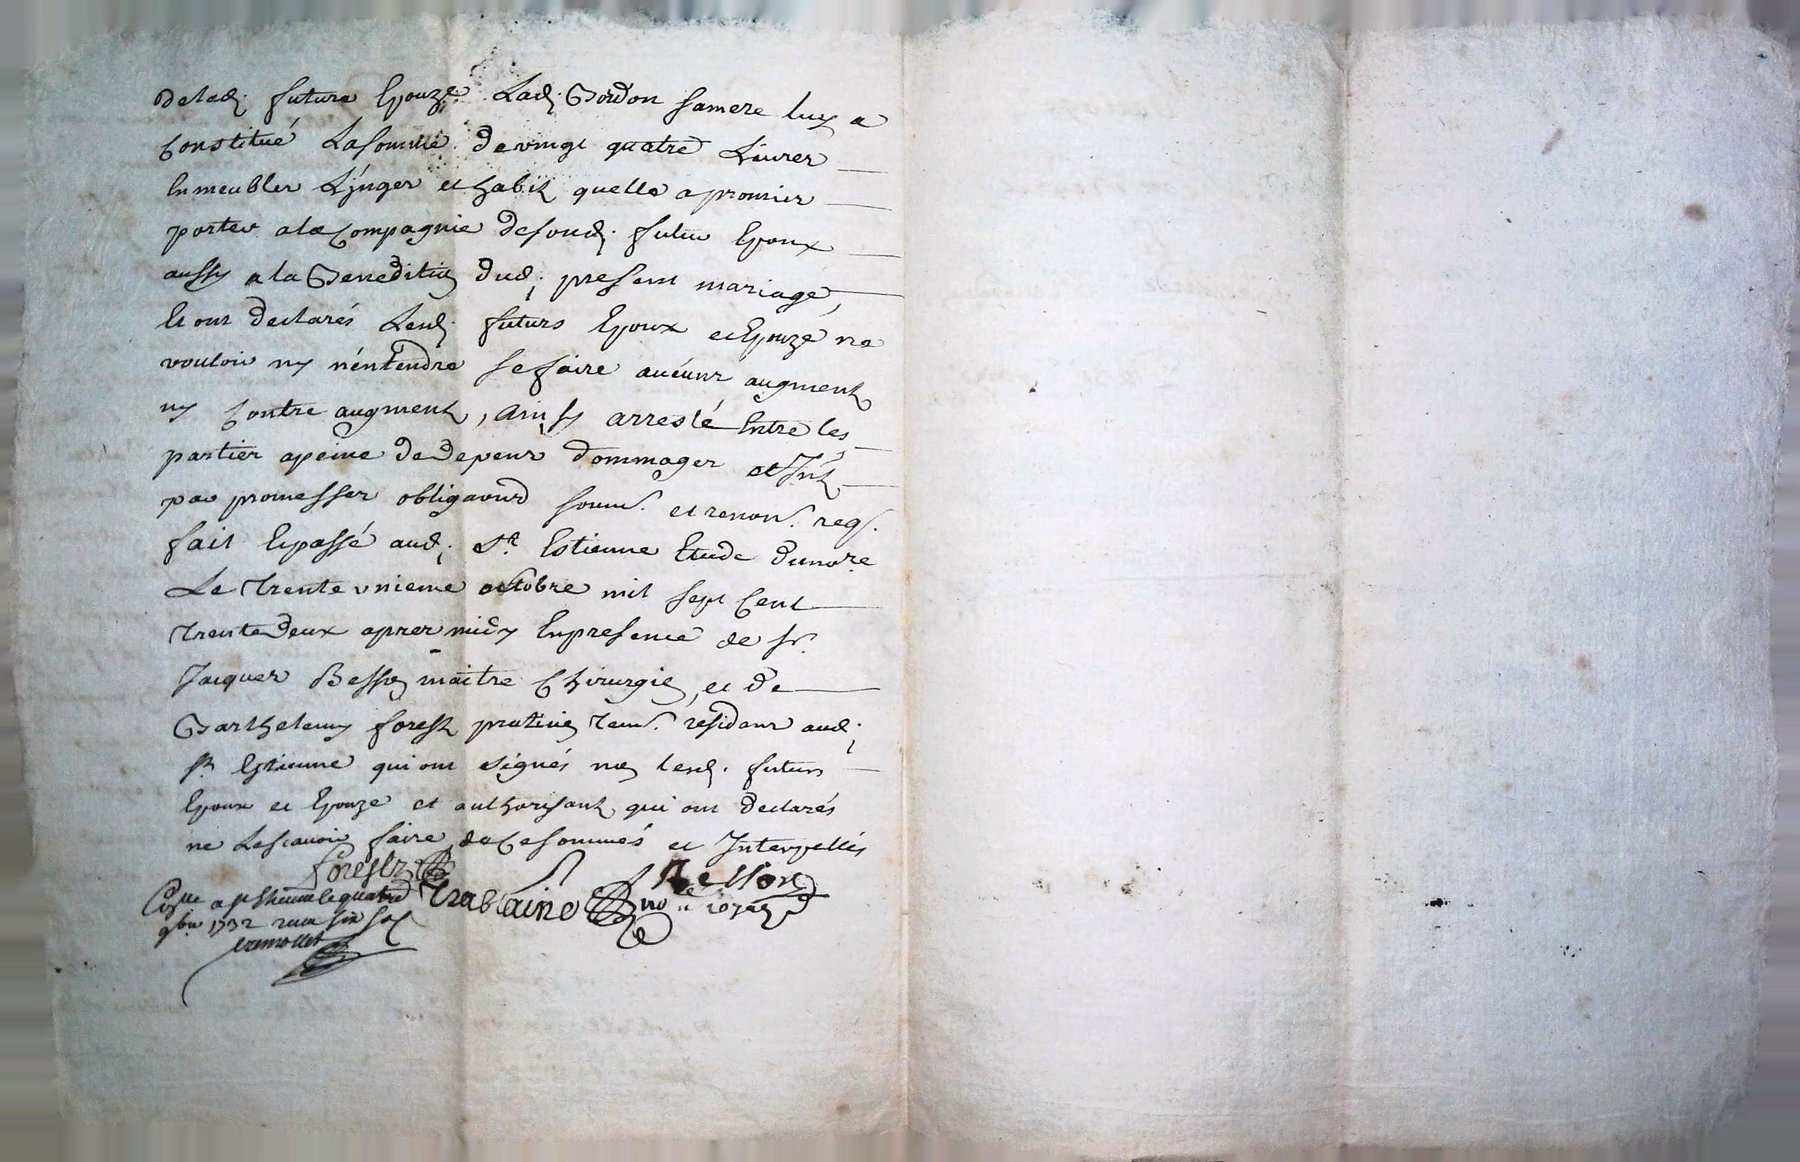 delad. future Epouze. Lad. Bordon samere luy a
Constitué Lasomme de vingt quatre Livres
En meubles Linges et habit quelle a promis
porter ala Compagnie desond. futur Epoux
aussy a la Benediction dud. present mariage,
Et ont declarés Lesd. futurs Epoux et Epouze ne
vouloir ny n'entendre se faire aucuns augment
ny Contre augment, ainsy arresté Entre les
parties a peine de depens dommages et Int.
par promesses obligaons soum. et renon. req.
fait Et passé aud. St. Estienne Etude du nore
Le trente unieme octobre mil sept Cent
trente deux apres midy En presence de sr.
Jacques Besson maitre Chirurgien, et de
Barthelemy forest praticien tem. residans aud.
St. Estienne qui ont signés non lesd. futurs
Epoux et Epouze et authorisant qui ont declarés
ne Lescavoir faire de Ce sommés et Interpellés
forest Besson
Trablaine no.re royal
Con.lle a st Etienne le quatre
9bre 1732 receu six sols